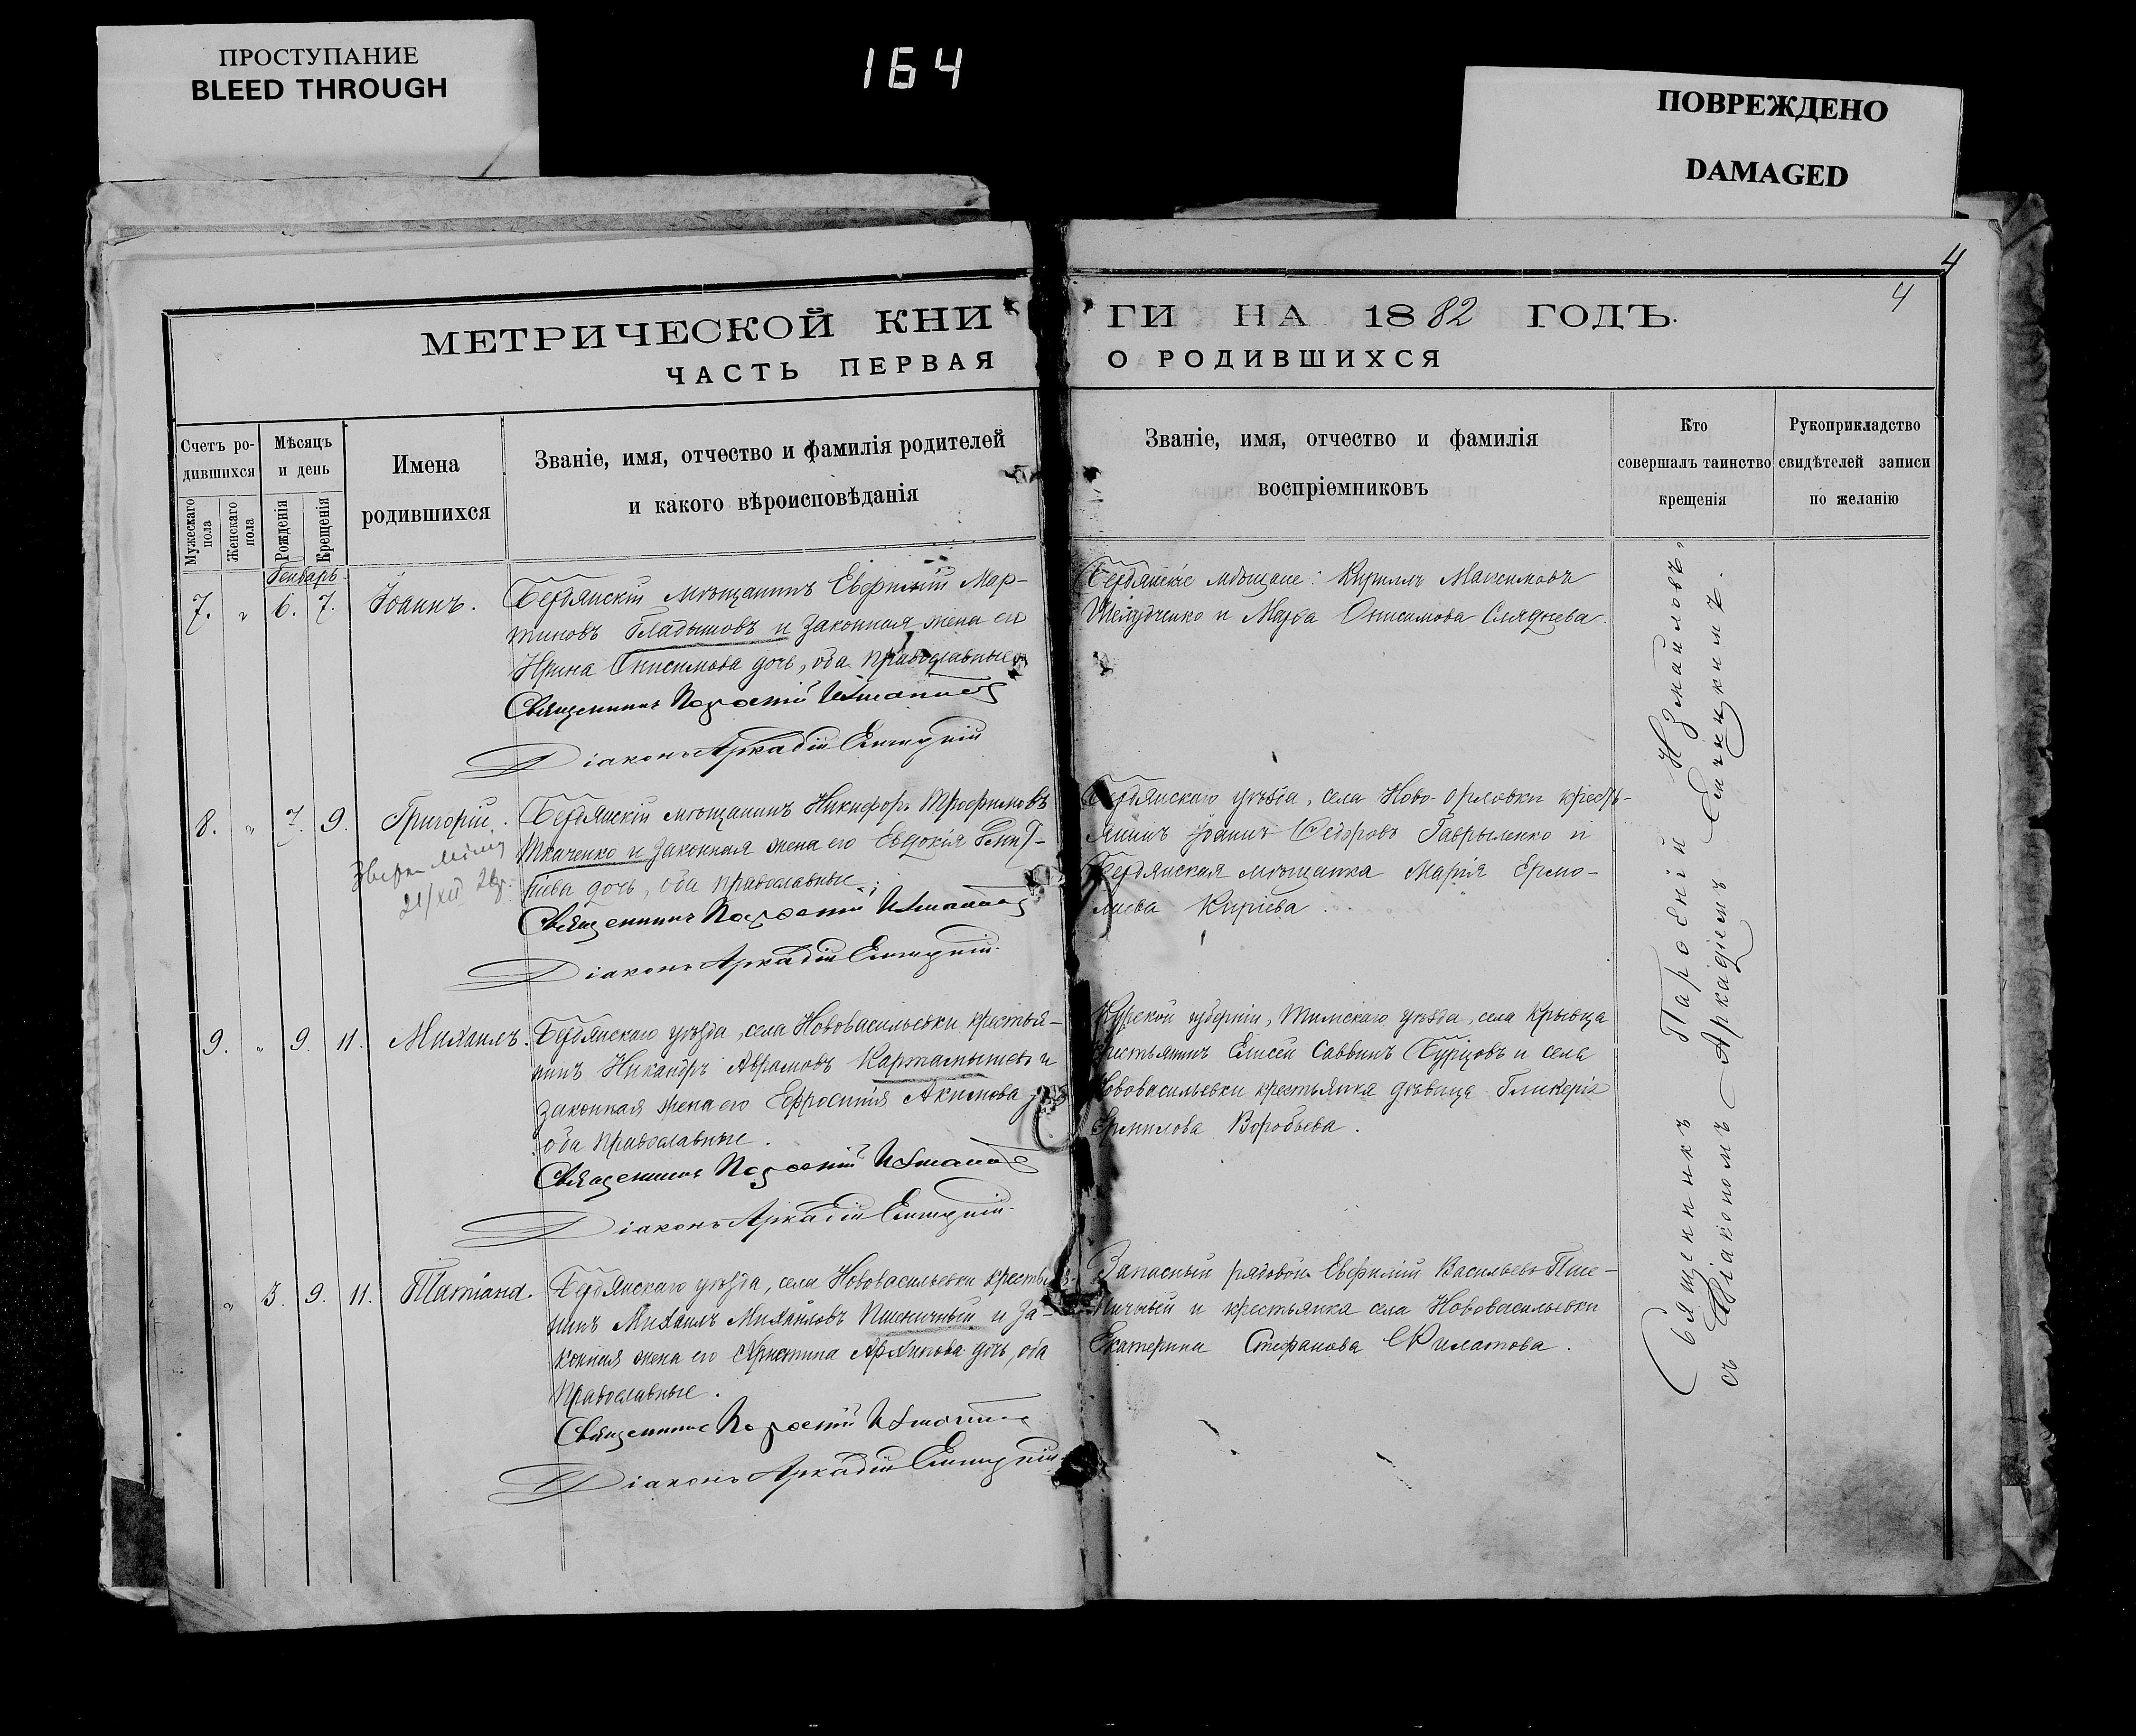 ПРОСТУПАНИЕ
BLEED THROUGH
164
ПОВРЕЖДЕНО
DAMAGED
4
4
МЕТРИЧЕСКОЙ КНИ
ГИ НА 1882 ГОДЪ.
ЧАСТЬ ПЕРВАЯ
О РОДИВШИХСЯ
Счетъ ро-
дившихся
Мужескаго
пола
Женскаго
пола
Мѣсяцъ
и день
Рожденія
Крещенія
Имена
родившихся
Званіе, имя, отчество и фамилія родителей
и какого вѣроисповѣданія
Званіе, имя, отчество и фамилія
воспріемниковъ
Кто
совершалъ таинство
крещенія
Рукоприкладство
свидѣтелей записи
по желанію
Генварь
7. " 6. 7. Іоаннъ.
Бердянскій мѣщанинъ Евфимій Мар-
тиновъ Гладышовъ и законная жена его
Ирина Онисимова дочь, оба православные
Священникъ
Діаконъ Аркадій
Бердянскіе мѣщане: Кириллъ Максимовъ
Шейудченко и Марѳа Онисимова Сляднева.
8. " 7. 9. Григорій.
21/XII
Бердянскій мѣщанинъ Никифоръ Трофимовъ
Ткаченко и законная жена его Евдокія
дочь, оба православные.
Священникъ
Діаконъ Аркадій
Бердянскаго уѣзда, села Ново-Орловки кресть-
янинъ Іоаннъ Ѳедоровъ Гавриленко и
Бердянская мѣщанка Марія Ермо-
лаева Киріева.
9. " 9. 11. Михаилъ.
Бердянскаго уѣзда, села Нововасильевки крестья-
нинъ Никандръ Аврамовъ Картамышевъ и
законная жена его Ефросинія Акимова
оба православные.
Священникъ
Діаконъ Аркадій
Курской губерніи, Тимскаго уѣзда, села Крывца
крестьянинъ Елисей Саввинъ Бурцовъ и села
Нововасильевки крестьянка дѣвица Гликерія
Ермилова Воробьева.
" 3. 9. 11. Татіана.
Бердянскаго уѣзда, села Нововасильевки крестья-
нинъ Михаилъ Михайловъ Пшеничный и за-
конная жена его Христина Архипова дочь, оба
православные.
Священникъ
Діаконъ Аркадій
Запасный рядовой Евфимій Васильевъ Пше-
ничный и крестьянка села Нововасильевки
Екатерина Стефанова Филатова.
Священникъ Парѳеній Измаиловъ,
съ Діакономъ Аркадіемъ